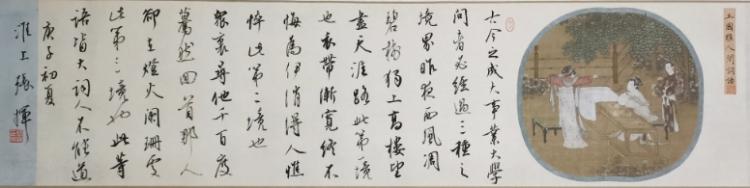 王國維人間詞話
古今之成大事業大學
问者必经過三種之
境界昨夜西风凋
碧樹独上高楼望
盡天涯路此第一境
也衣带漸寬终不
悔為伊消得人憔
悴此第二境也
衆裏尋他千百度
驀然回首那人
却在燈火闌珊處
此第三境也此等
语皆大词人不能道
庚子初夏
淮上張輝